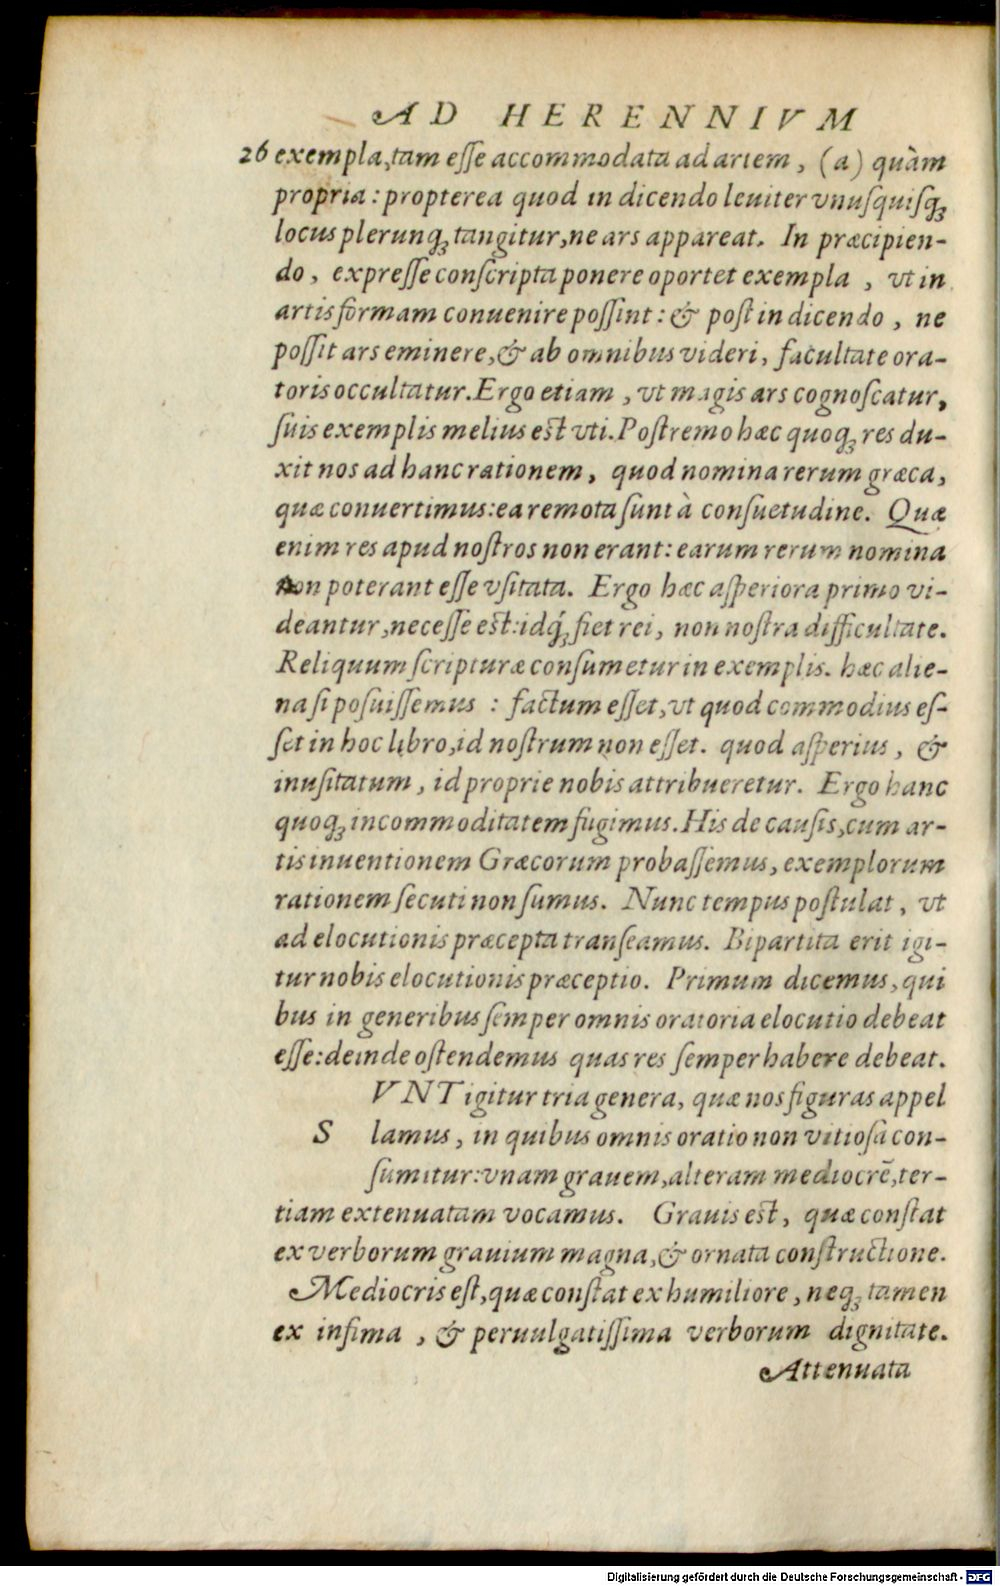 AD HERENNIVM
26 exempla, tam esse accommodata ad artem, (a) quàm
propria: propterea quod in dicendo leuiter vnusquisqꝫ
locus plerunqꝫ tangitur, ne ars appareat. In præcipien-
do, expresse conscripta ponere oportet exempla, vt in
artis formam conuenire possint: & post in dicendo, ne
possit ars eminere, & ab omnibus videri, facultate ora-
toris occultatur. Ergo etiam, vt magis ars cognoscatur,
suis exemplis melius est vti. Postremo hæc quoqꝫ res du-
xit nos ad hanc rationem, quod nomina rerum græca,
quæ conuertimus: ea remota sunt à consuetudine. Quæ
enim res apud nostros non erant: earum rerum nomina
non poterant esse vsitata. Ergo hæc asperiora primo vi-
deantur, necesse est: idqꝫ́ fiet rei, non nostra difficultate.
Reliquum scripturæ consumetur in exemplis. hæc alie-
na si posuissemus: factum esset, vt quod commodius es-
set in hoc libro, id nostrum non esset. quod asperius, &
inusitatum, id proprie nobis attribueretur. Ergo hanc
quoqꝫ incommoditatem fugimus. His de causis, cum ar-
tis inuentionem Græcorum probassemus, exemplorum
rationem secuti non sumus. Nunc tempus postulat, vt
ad elocutionis præcepta transeamus. Bipartita erit igi-
tur nobis elocutionis præceptio. Primum dicemus, qui
bus in generibus semper omnis oratoria elocutio debeat
esse: deinde ostendemus quas res semper habere debeat.
SVNT igitur tria genera, quæ nos figuras appel
lamus, in quibus omnis oratio non vitiosa con-
sumitur: vnam grauem, alteram mediocrē, ter-
tiam extenuatam vocamus. Grauis est, quæ constat
ex verborum grauium magna, & ornata constructione.
Mediocris est, quæ constat ex humiliore, neqꝫ tamen
ex infima, & peruulgatissima verborum dignitate.
Attenuata
Digitalisierung gefördert durch die Deutsche Forschungsgemeinschaft - DFG